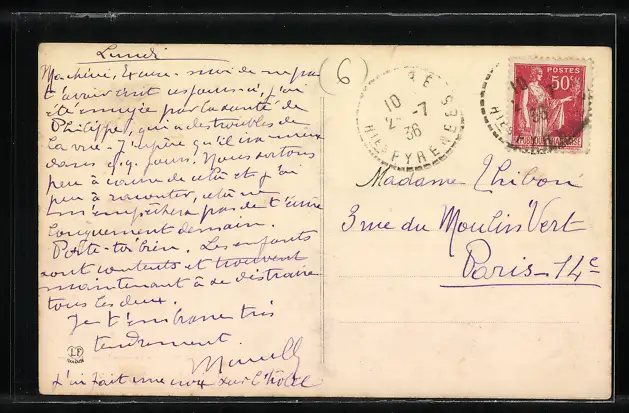 Lundi
Ma chérie, Excuse-moi de ne pas
t'avoir écrit ces jours-ci, j'ai
été ennuyée par la santé de
Philippe, qui a des troubles de
la vue. J'espère qu'il ira mieux
dans q.q. jours. Nous sortons
peu à cause de cela et j'ai
peu à raconter, cela ne
m'empêchera pas de t'écrire
longuement demain.
Porte-toi bien. Les enfants
sont contents et trouvent
maintenant à se distraire
tous les deux.
Je t'embrasse très
tendrement.
J'ai fait une croix sur l'hôtel
6
10
2-7
36
HTES PYRENEES
POSTES
50c
Madame Thibon
3 rue du Moulin Vert
Paris-14e